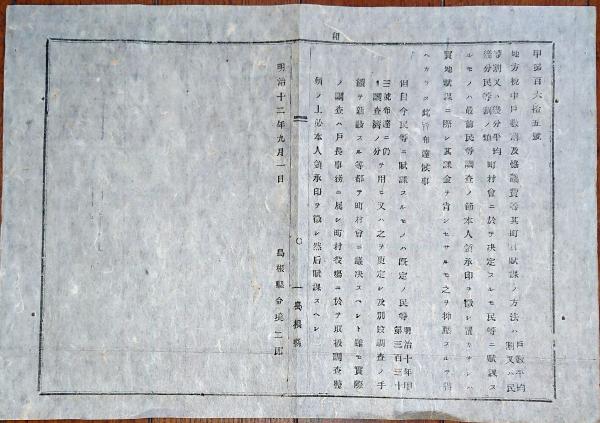 甲第百六拾五號
地方税中戸數割及協議費等其町村賦課ノ方法ハ戸數平均割又ハ民
等割又ハ幾分平均幾分民等割ノ類町村會ニ於テ決定スルモ民等ニ賦課ス
ルモノハ最前民等調査ノ節本人領承印ヲ徴シ置カサレハ
實地賦課ニ際シ其課金ヲ肯ンセサルモ之ヲ抑壓スルヲ得
ヘカラス此旨布達候事
但自今民等ニ賦課スルモノハ既定ノ民等明治十年甲第三百三十
三號布達ニ仍リ調査濟ノ分ヲ用ヒ又ハ之ヲ更定シ及別段調査ノ手
續ヲ新設スル等都テ町村會ニ議決スヘシト雖モ實際
ノ調査ハ戸長事務ニ屬シ町村役塲ニ於テ取扱調査整
頓ノ上必本人領承印ヲ徴シ然后賦課スヘシ
一 島根縣
明治十二年九月一日
島根縣令境二郎